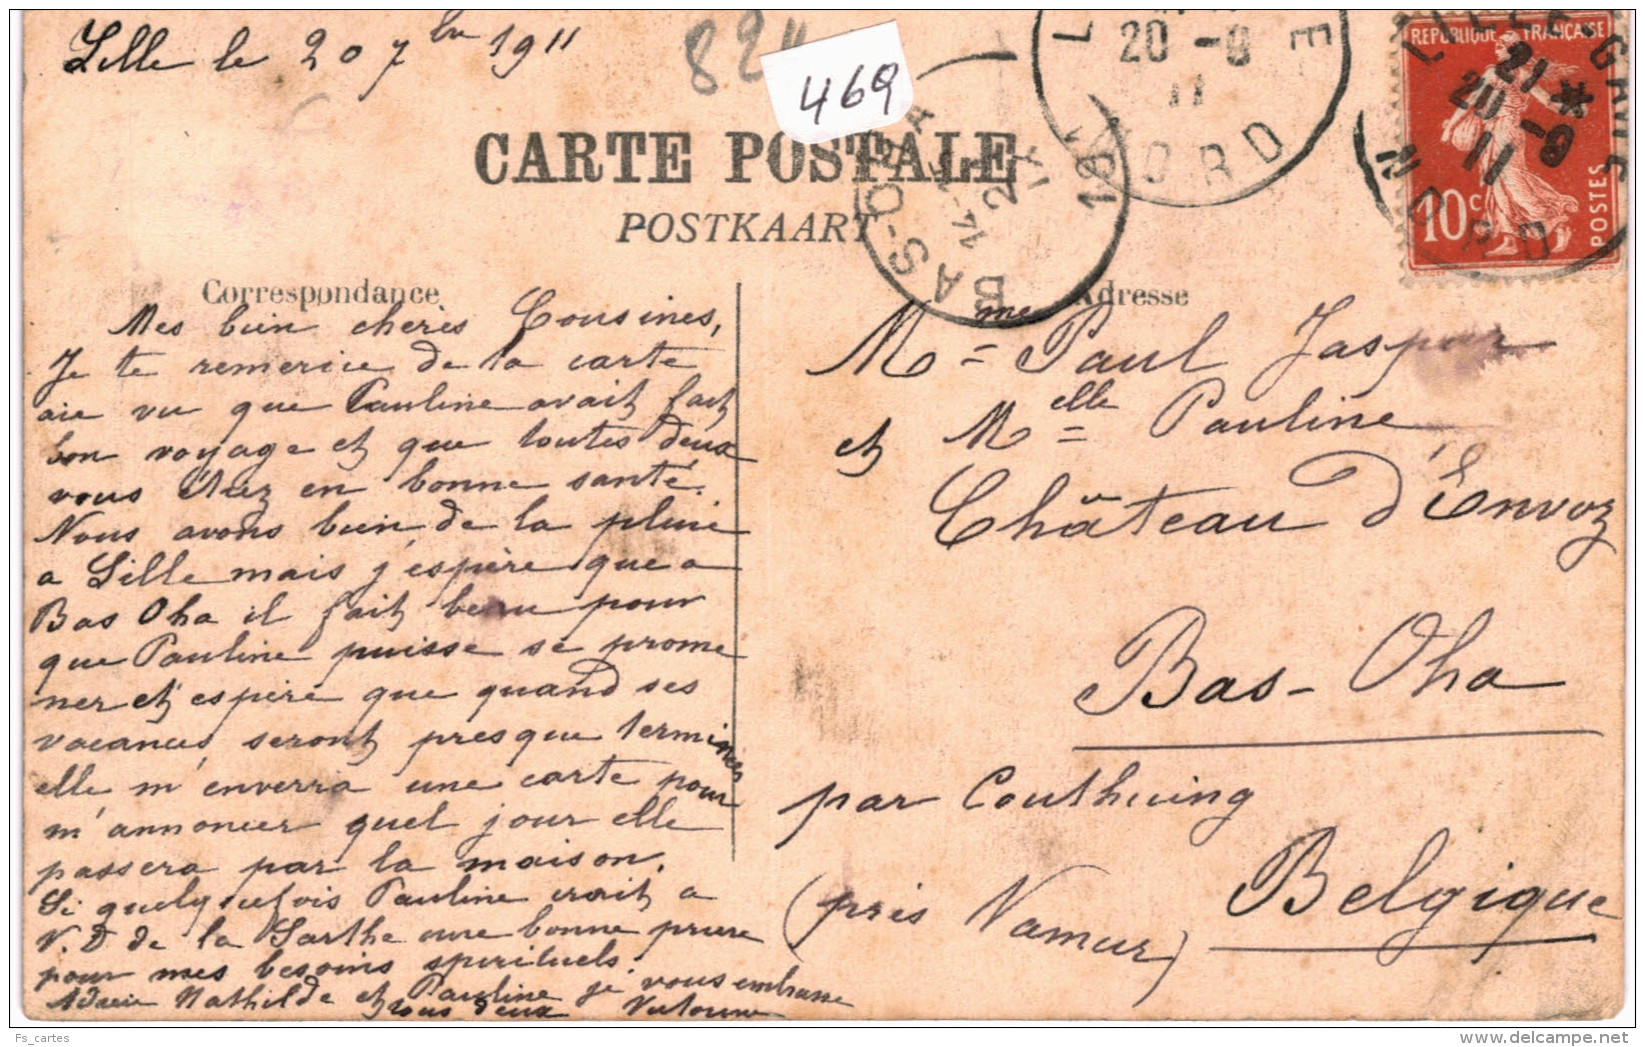 Lille le 20 7bre 1911
82"
469
CARTE POSTALE
POSTKAART
RÉPUBLIQUE FRANÇAISE
10c
POSTES
20 - 9
11
NORD
E
LILLE GARE
21 *
20 - 9
11
NORD
BAS-OHA
14-
21 IX
1911
Correspondance
Adresse
Mes bien cheres Cousines,
Je te remercie de la carte
aie vu que Pauline avait fait
bon voyage et que toutes deux
vous étiez en bonne santé.
Nous avons bien de la pluie
a Lille mais j'espère que a
Bas Oha il fait beau pour
que Pauline puisse se prome
ner et espère que quand ses
vacances seront presque terminées
elle m'enverra une carte pour
m'annoncer quel jour elle
passera par la maison.
Si quelquefois Pauline irait a
N.D de la Sarthe une bonne priere
pour mes besoins spirituels.
Mathilde et Pauline je vous embrasse
tous deux
Mme Paul Jaspar
et Melle Pauline
Château d'Envoz
Bas-Oha
par Couthuing
(près Namur)
Belgique
Fs_cartes
delcampe.net